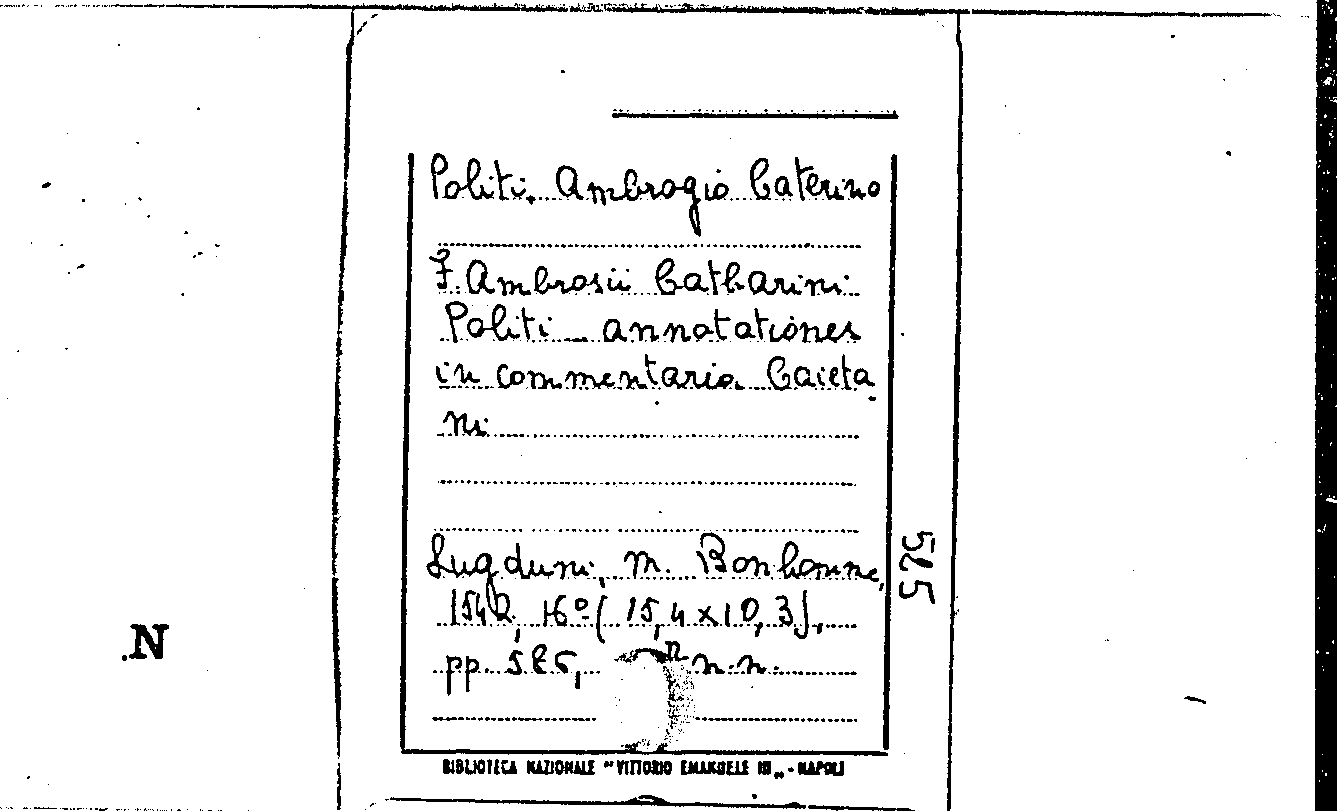 Politi, Ambrogio Caterino
F. Ambrosii Catharini
Politi annotationes
in commentaria Caieta
ni
Lugduni, M. Bonhomme,
1542, 16º (15,4 x 10,3),
pp. 585, n.n.
585
N
BIBLIOTECA NAZIONALE "VITTORIO EMANUELE III" - NAPOLI